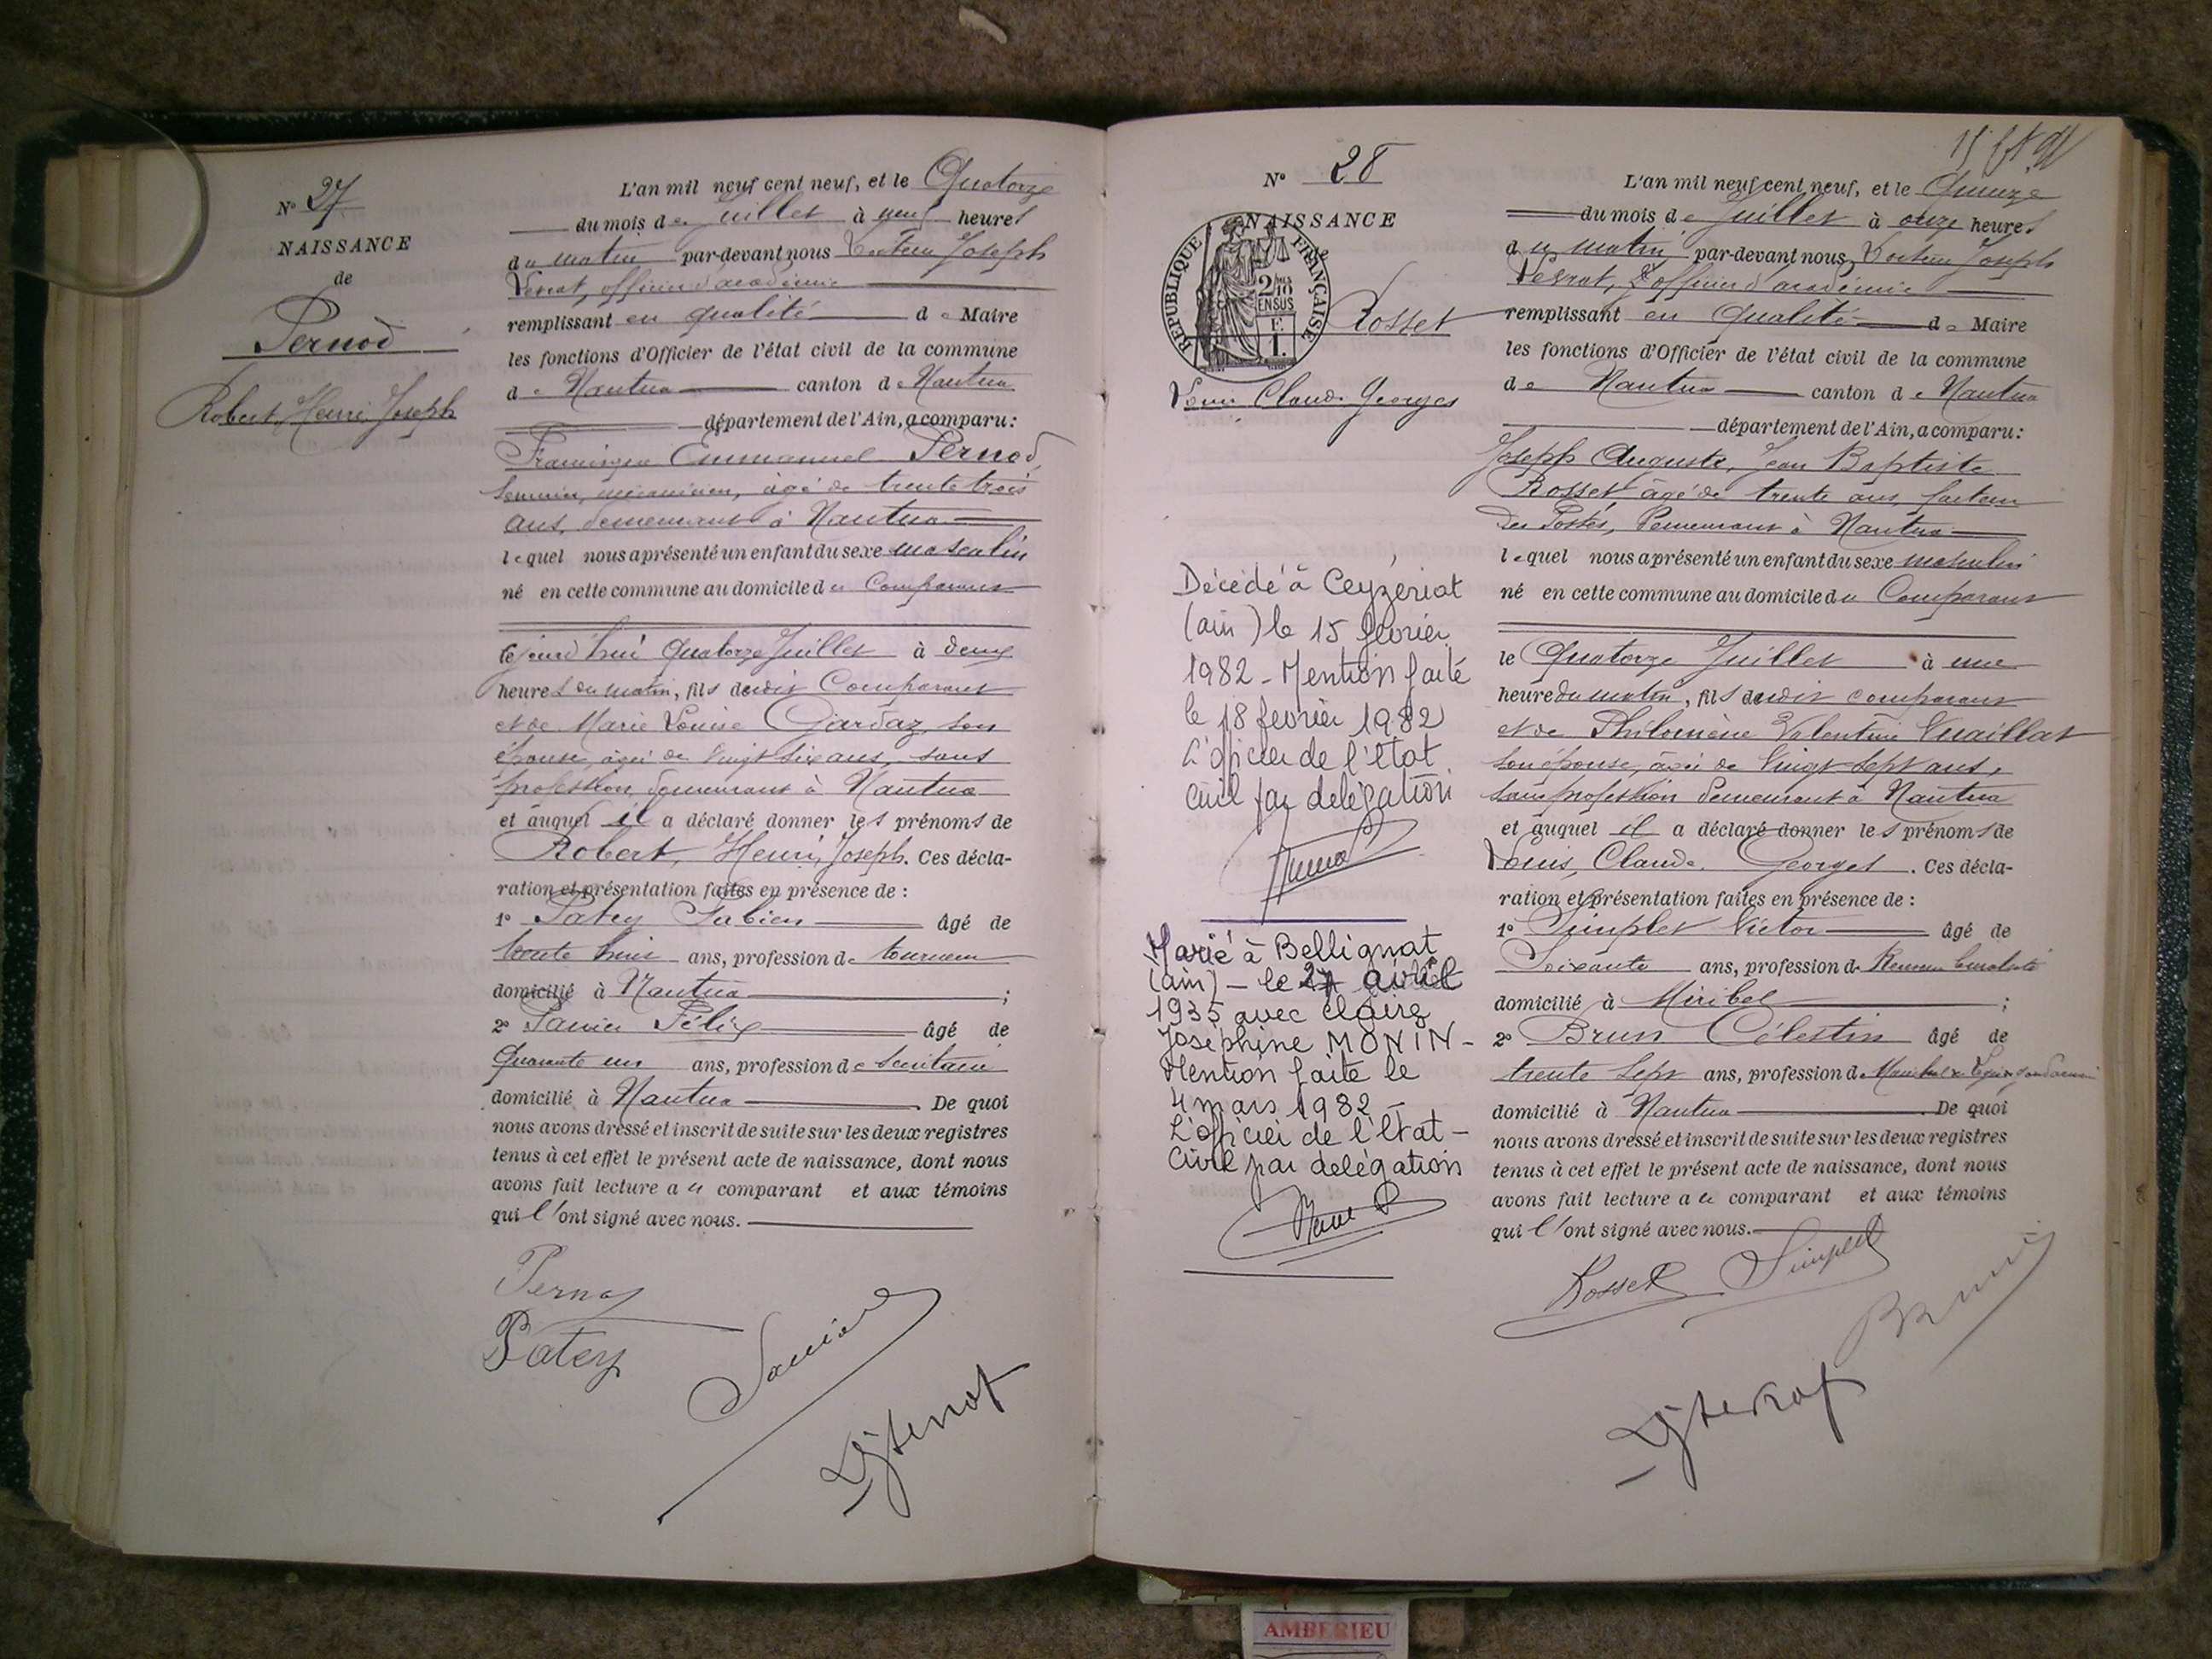 N° 27
NAISSANCE
de
Pernod
Robert, Henri, Joseph
L'an mil neuf cent neuf, et le Quatorze
du mois de Juillet à neuf heures
du matin par-devant nous Joseph
officier d'académie
remplissant en qualité de Maire
les fonctions d'Officier de l'état civil de la commune
de Nantua canton de Nantua
département de l'Ain, a comparu :
Emmanuel Pernod
mécanicien, âgé de trente trois
ans, demeurant à Nantua
lequel nous a présenté un enfant du sexe masculin
né en cette commune au domicile du Comparant
cejourd'hui Quatorze Juillet à deux
heures du matin, fils dudit Comparant
et de Marie Louise Gardaz, son
épouse, âgée de vingt six ans, sans
profession, demeurant à Nantua
et auquel il a déclaré donner les prénoms de
Robert, Henri, Joseph. Ces décla-
ration et présentation faites en présence de :
1° Patey Fabien âgé de
trente huit ans, profession de tourneur
domicilié à Nantua ;
2° Félix âgé de
Quarante un ans, profession de
domicilié à Nantua . De quoi
nous avons dressé et inscrit de suite sur les deux registres
tenus à cet effet le présent acte de naissance, dont nous
avons fait lecture au comparant et aux témoins
qui l'ont signé avec nous.
Pernod
Patey
N° 28
NAISSANCE
de
REPUBLIQUE FRANÇAISE
2/10 EN SUS
F. 1.
Rosset
Louis Claude Georges
Décédé à Ceyzériat
(ain) le 15 février
1982 - Mention faite
le 18 février 1982
L'officier de l'Etat
civil par délégation
Marié à Bellignat
(ain) - le 27 avril
1935 avec Claire
Joséphine MONIN -
Mention faite le
4 mars 1982 -
L'officier de l'Etat -
Civil par délégation
L'an mil neuf cent neuf, et le Quinze
du mois de Juillet à onze heures
du matin par-devant nous, Joseph
officier d'académie
remplissant en qualité de Maire
les fonctions d'Officier de l'état civil de la commune
de Nantua canton de Nantua
département de l'Ain, a comparu :
Joseph Auguste, Jean Baptiste
Rosset âgé de trente ans, facteur
des Postes, demeurant à Nantua
lequel nous a présenté un enfant du sexe masculin
né en cette commune au domicile du Comparant
le Quatorze Juillet à une
heure du matin, fils dudit comparant
et de Philomène Valentine Vuaillat
son épouse, âgée de vingt sept ans,
sans profession demeurant à Nantua
et auquel il a déclaré donner les prénoms de
Louis, Claude, Georges. Ces décla-
ration et présentation faites en présence de :
1° Simplet Victor âgé de
Soixante ans, profession de
domicilié à Miribel ;
2° Brun Célestin âgé de
trente sept ans, profession de
domicilié à Nantua . De quoi
nous avons dressé et inscrit de suite sur les deux registres
tenus à cet effet le présent acte de naissance, dont nous
avons fait lecture au comparant et aux témoins
qui l'ont signé avec nous.
Rosset Simplet
Brun
AMBERIEU